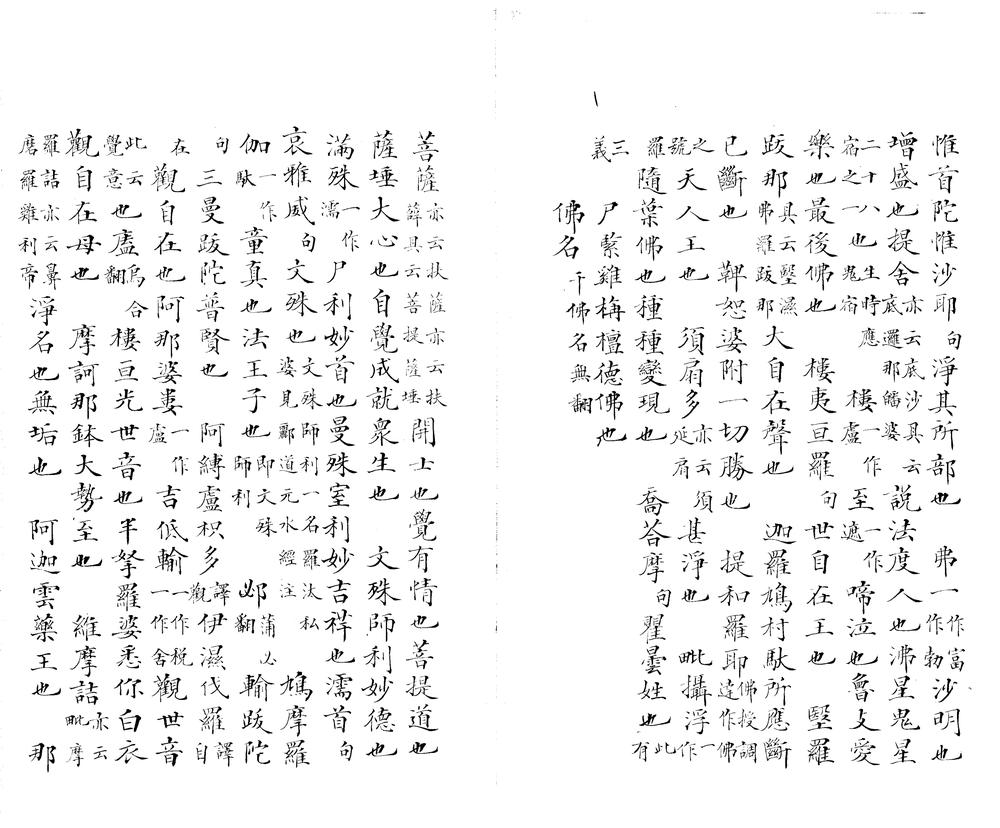 惟首陀惟沙耶句淨其所部也　弗一作富作勃沙明也
增盛也提舍亦云底沙具云底邏那皤婆說法度人也沸星鬼星
二十八生時應宿之一也鬼宿　樓一作盧至一作遮啼泣也魯支愛
樂也最後佛也　樓夷亘羅句世自在王也　堅羅
跋那具云堅濕弗羅跋那大自在聲也　迦羅鳩村馱所應斷
已斷也　鞞恕婆附一切勝也　提和羅耶佛授調達作佛
之號天人王也　須扇多亦云須延扇甚淨也　毗攝浮一作
羅隨葉佛也種種變現也　喬荅摩句瞿曇姓也此有
三義　尸縶雞栴檀德佛也
佛名千佛名無翻
菩薩亦云扶薩亦云扶薛具云菩提薩埵開士也覺有情也菩提道也
薩埵大心也自覺成就衆生也　文殊師利妙德也
滿殊一作濡尸利妙首也曼殊室利妙吉祥也濡首句
哀雅威句文殊也文殊師利一名羅汰私婆見酈道元水經注　鳩摩羅
伽一作馱童真也法王子也即文殊師利　邲蒲必翻輸跋陀
句三曼跋陀普賢也　阿縛盧枳多譯觀伊濕伐羅譯自
在觀自在也阿那婆婁一作盧吉低輸一作稅一作舍觀世音
此云覺意也廅烏合翻樓亘光世音也半拏羅婆悉你白衣
觀自在母也　摩訶那鉢大勢至也　維摩詰亦云毗摩
羅詰亦云鼻磨羅雞利帝淨名也無垢也　阿迦雲藥王也　那